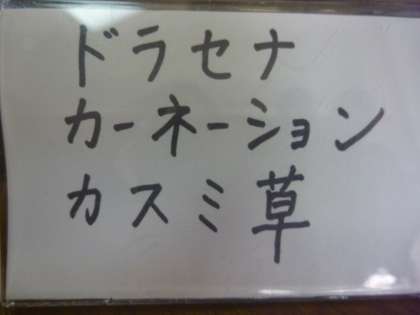 ドラセナ
カーネーション
カスミ草